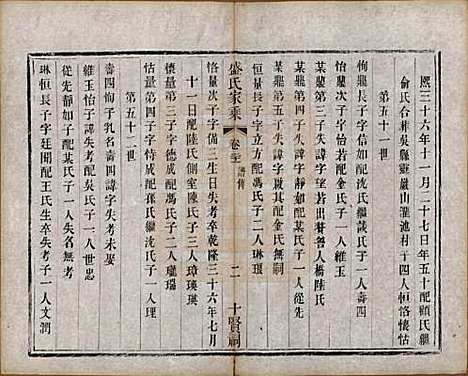 熙三十六年十一月二十七日年五十配顧氏繼
俞氏合葬吳縣靈巖山灌池村子四人恒恪懷怙
第五十一世
恂龜長子字信如配沈氏繼葳氏子一人壽四
某龜第二子字怡若配金氏子一人維玉
某龜第四子失諱字出贅婿人橋陸氏
某龜第五子失諱字靜如配某氏子一人從先
某龜第六子失諱字賦其配金氏無嗣
恒量長子字立方配馮氏子二人琳琪
盛氏家乘
卷三
譜傳
二
十賢祠
恪量次子字備三生日失考乾隆三十六年七月
十一日配陸氏側室陳氏子三人璋瑛瑛
懷量第三子字德成配馮氏子二人瓏瑞
怙量第四子字侍成配孫氏繼沈氏子一人
第五十二世
壽四恂子乳名壽四諱字失考未娶
維玉怡子諱失考配吳氏子一人世忠
從先靜如子配某氏子一人失名無考
琳恒長子字廷開配王氏生卒失考子一人文潤